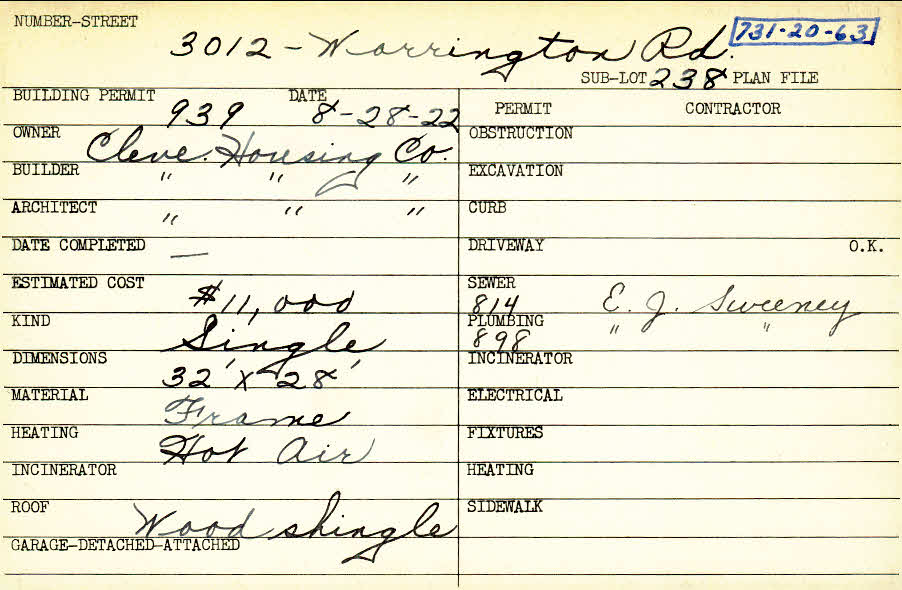 NUMBER-STREET
3012 - Warrington Rd. 731-20-63
SUB-LOT 238 PLAN FILE
BUILDING PERMIT 939 DATE 8-28-22
PERMIT CONTRACTOR
OWNER Cleve. Housing Co.
OBSTRUCTION
BUILDER " " "
EXCAVATION
ARCHITECT " " "
CURB
DATE COMPLETED —
DRIVEWAY O.K.
ESTIMATED COST $11,000
SEWER 814 E. J. Sweeney
KIND Single
PLUMBING 898 " "
DIMENSIONS 32' X 28'
INCINERATOR
MATERIAL Frame
ELECTRICAL
HEATING Hot Air
FIXTURES
INCINERATOR
HEATING
ROOF Wood shingle
SIDEWALK
GARAGE-DETACHED-ATTACHED